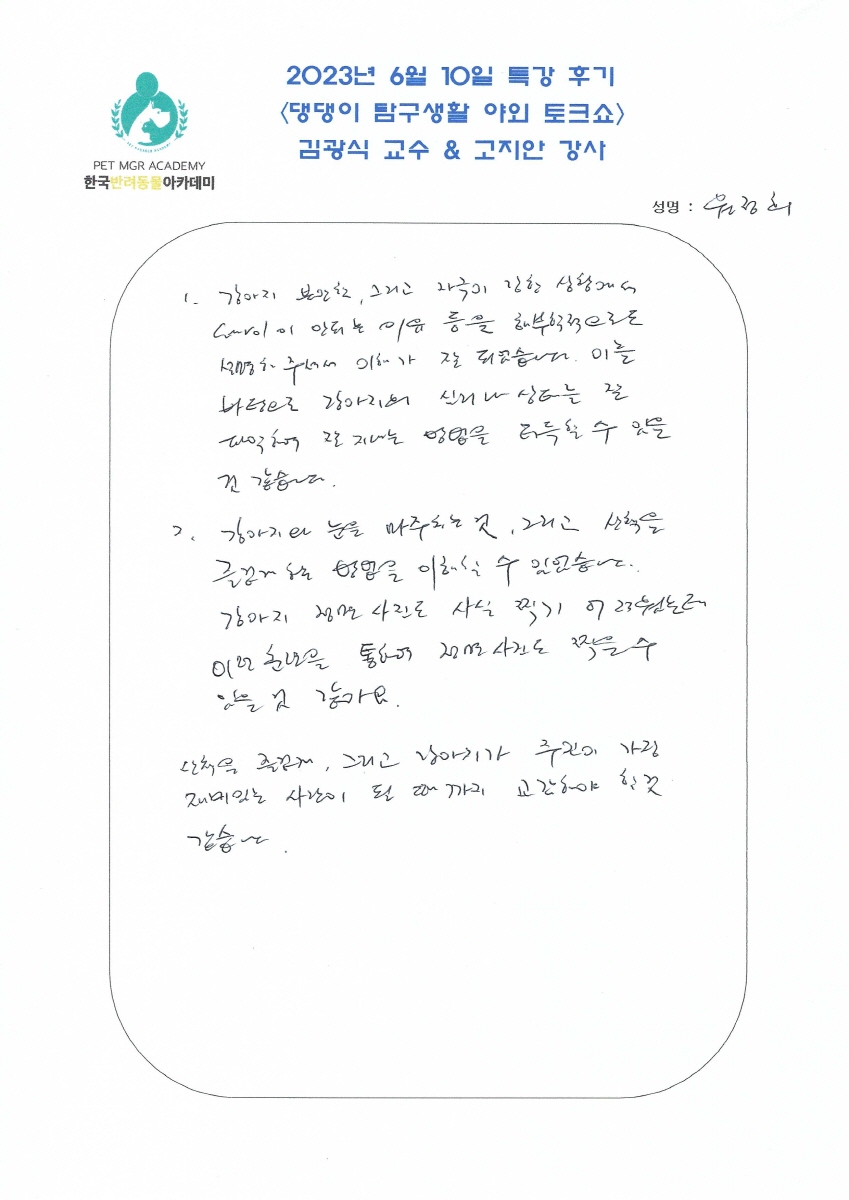 2023년 6월 10일 특강 후기
<댕댕이 탐구생활 야외 토크쇼>
김광식 교수 & 고지안 강사
PET MGR ACADEMY
한국반려동물아카데미
성명 :
1. 강아지 그리고 자극이 강한 상황에서
이 안되는 이유 등을 해부학적으로도
설명해 주셔서 이해가 잘 되었습니다. 이를
바탕으로 강아지의 심리나 상태를 잘
파악하여 잘 지내는 방법을 터득할 수 있을
것 같습니다.
2. 강아지와 눈을 마주치는 것, 그리고 산책을
즐겁게 하는 방법을 이해할 수 있었습니다.
강아지 정면 사진도 사실 찍기 어려웠는데
이런 훈련을 통하여 정면 사진도 찍을 수
있을 것 같아요.
산책을 즐겁게, 그리고 강아지가 주인이 가장
재미있는 사람이 될 때까지 교감해야 할 것
같습니다.